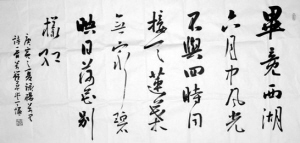 畢竟西湖
六月中風光
不與四時同
接天蓮葉
無窮碧
映日荷花別
樣紅